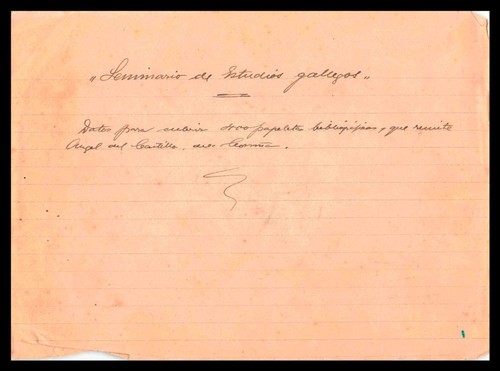 "Seminario de Estudios gallegos"
Datos para cubrir 400 papeletas bibliográficas, que remite
Angel del Castillo, de